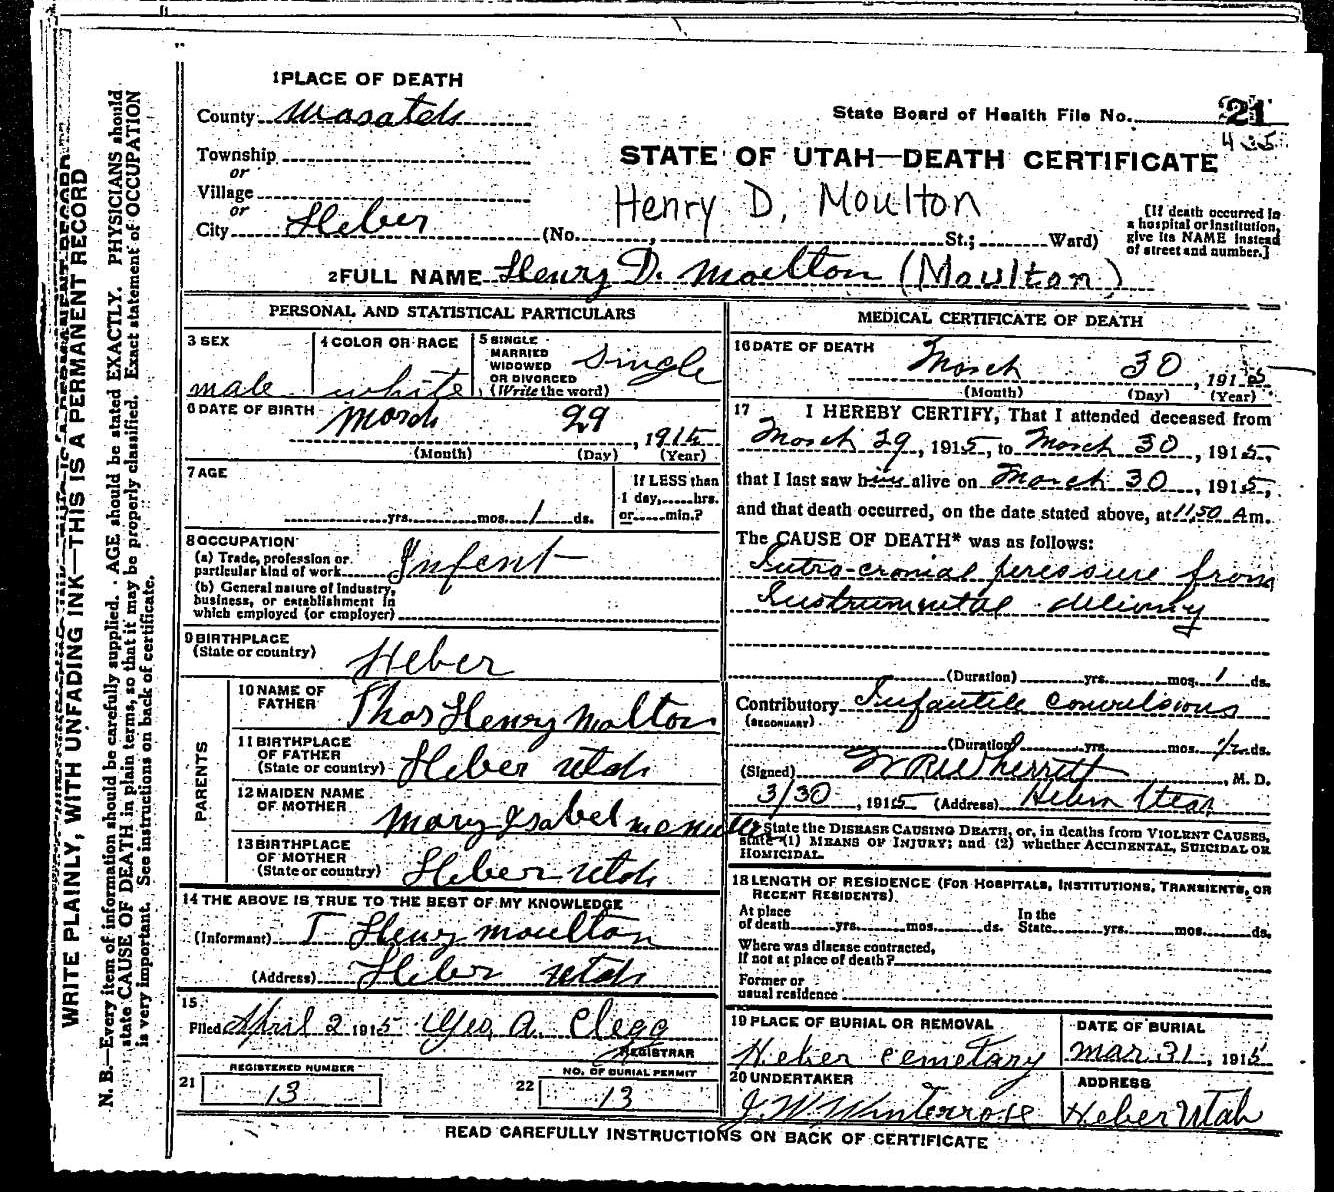 1 PLACE OF DEATH
County Wasatch
State Board of Health File No. 21
435
Township
or
Village
or
City Heber
STATE OF UTAH—DEATH CERTIFICATE
Henry D. Moulton
(No. , St.; Ward)
[If death occurred in
a hospital or institution,
give its NAME instead
of street and number.]
2 FULL NAME Henry D. Moelton (Moulton)
PERSONAL AND STATISTICAL PARTICULARS
3 SEX
male
4 COLOR OR RACE
white
5 SINGLE
MARRIED
WIDOWED
OR DIVORCED
(Write the word)
Single
6 DATE OF BIRTH March 29, 1915
(Month) (Day) (Year)
7 AGE
yrs. mos. 1 ds.
If LESS than
1 day, hrs.
or min.?
8 OCCUPATION
(a) Trade, profession or
particular kind of work Infent
(b) General nature of industry,
business, or establishment in
which employed (or employer)
9 BIRTHPLACE
(State or country) Heber
PARENTS
10 NAME OF
FATHER Thos Henry Molton
11 BIRTHPLACE
OF FATHER
(State or country) Heber Utah
12 MAIDEN NAME
OF MOTHER Mary Isabel
13 BIRTHPLACE
OF MOTHER
(State or country) Heber Utah
14 THE ABOVE IS TRUE TO THE BEST OF MY KNOWLEDGE
(Informant) T Henry Moulton
(Address) Heber Utah
15
Filed April 2 1915 Geo A. Clegg
REGISTRAR
21 REGISTERED NUMBER
13
22 NO. OF BURIAL PERMIT
13
MEDICAL CERTIFICATE OF DEATH
16 DATE OF DEATH
March 30, 1915
(Month) (Day) (Year)
17 I HEREBY CERTIFY, That I attended deceased from
March 29, 1915, to March 30, 1915,
that I last saw him alive on March 30, 1915,
and that death occurred, on the date stated above, at 11,50 Am.
The CAUSE OF DEATH* was as follows:
Intra-cranial pressure from
Instrumental delivery
(Duration) yrs. mos. 1 ds.
Contributory Infantile convulsions
(SECONDARY)
(Duration) yrs. mos. 1/2 ds.
(Signed) W R Wherritt, M. D.
3/30, 1915 (Address) Heber Utah
*State the DISEASE CAUSING DEATH, or, in deaths from VIOLENT CAUSES,
state (1) MEANS OF INJURY; and (2) whether ACCIDENTAL, SUICIDAL OR
HOMICIDAL.
18 LENGTH OF RESIDENCE (FOR HOSPITALS, INSTITUTIONS, TRANSIENTS, OR
RECENT RESIDENTS).
At place
of death yrs. mos. ds.
In the
State yrs. mos. ds.
Where was disease contracted,
if not at place of death?
Former or
usual residence
19 PLACE OF BURIAL OR REMOVAL
Heber Cemetary
DATE OF BURIAL
Mar 31, 1915
20 UNDERTAKER
J. W. Winterrose
ADDRESS
Heber Utah
READ CAREFULLY INSTRUCTIONS ON BACK OF CERTIFICATE
WRITE PLAINLY, WITH UNFADING INK—THIS IS A PERMANENT RECORD
N. B.—Every item of information should be carefully supplied. AGE should be stated EXACTLY. PHYSICIANS should
state CAUSE OF DEATH in plain terms, so that it may be properly classified. Exact statement of OCCUPATION
is very important. See instructions on back of certificate.